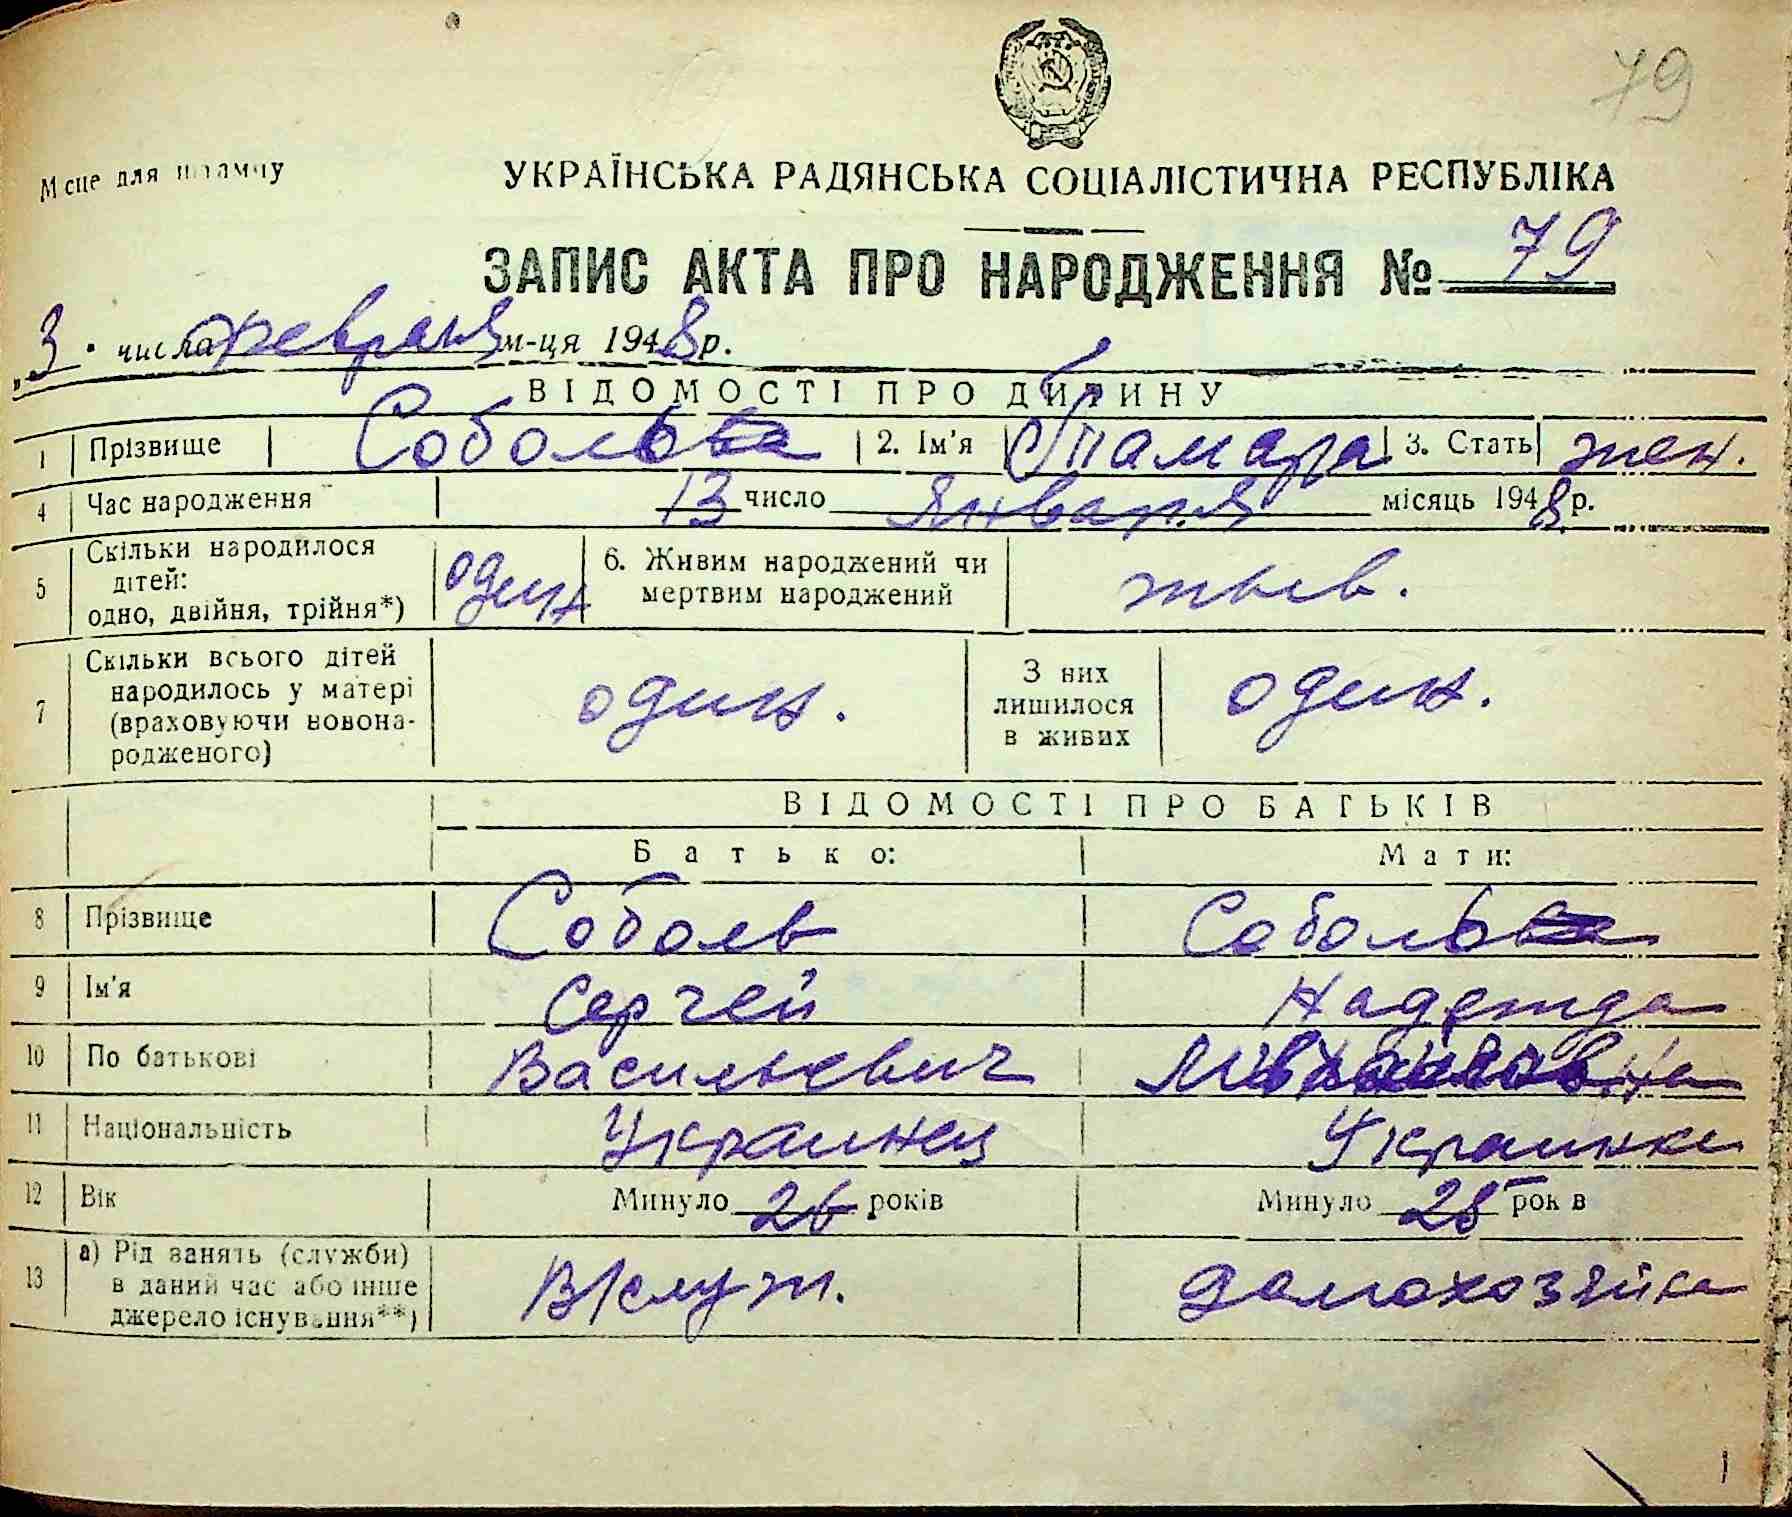 79
Місце для штампу
УКРАЇНСЬКА РАДЯНСЬКА СОЦІАЛІСТИЧНА РЕСПУБЛІКА
ЗАПИС АКТА ПРО НАРОДЖЕННЯ № 79
"3" числа февраля м-ця 1948 р.
ВІДОМОСТІ ПРО ДИТИНУ
1 Прізвище Соболь 2. Ім'я Тамара 3. Стать жен.
4 Час народження 13 число января місяць 1948 р.
5 Скільки народилося дітей: одно, двійня, трійня*) один 6. Живим народжений чи мертвим народжений жив.
7 Скільки всього дітей народилось у матері (враховуючи новонародженого) один. З них лишилося в живих один.
ВІДОМОСТІ ПРО БАТЬКІВ
Батько: Мати:
8 Прізвище Соболь Соболь
9 Ім'я Сергей Надежда
10 По батькові Васильевич
11 Національність Украинец Украинка
12 Вік Минуло 26 років Минуло 25 років
13 а) Рід занять (служби) в даний час або інше джерело існування**) В/служ. домохозяйка
1